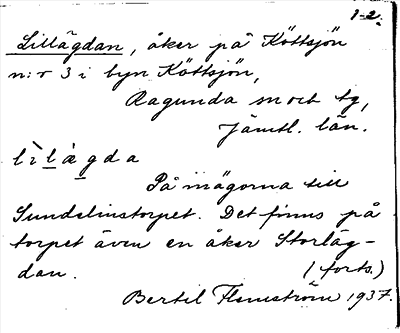 1-2.
Lillägdan, åker på Köttsjön
n:r 3 i byn Köttsjön,
Ragunda sn och tg,
Jämtl. län.
lìlàgda
På inägorna till
Sundelinstorpet. Det finns på
torpet även en åker Storläg-
dan. (forts.)
Bertil Flemström 1937.